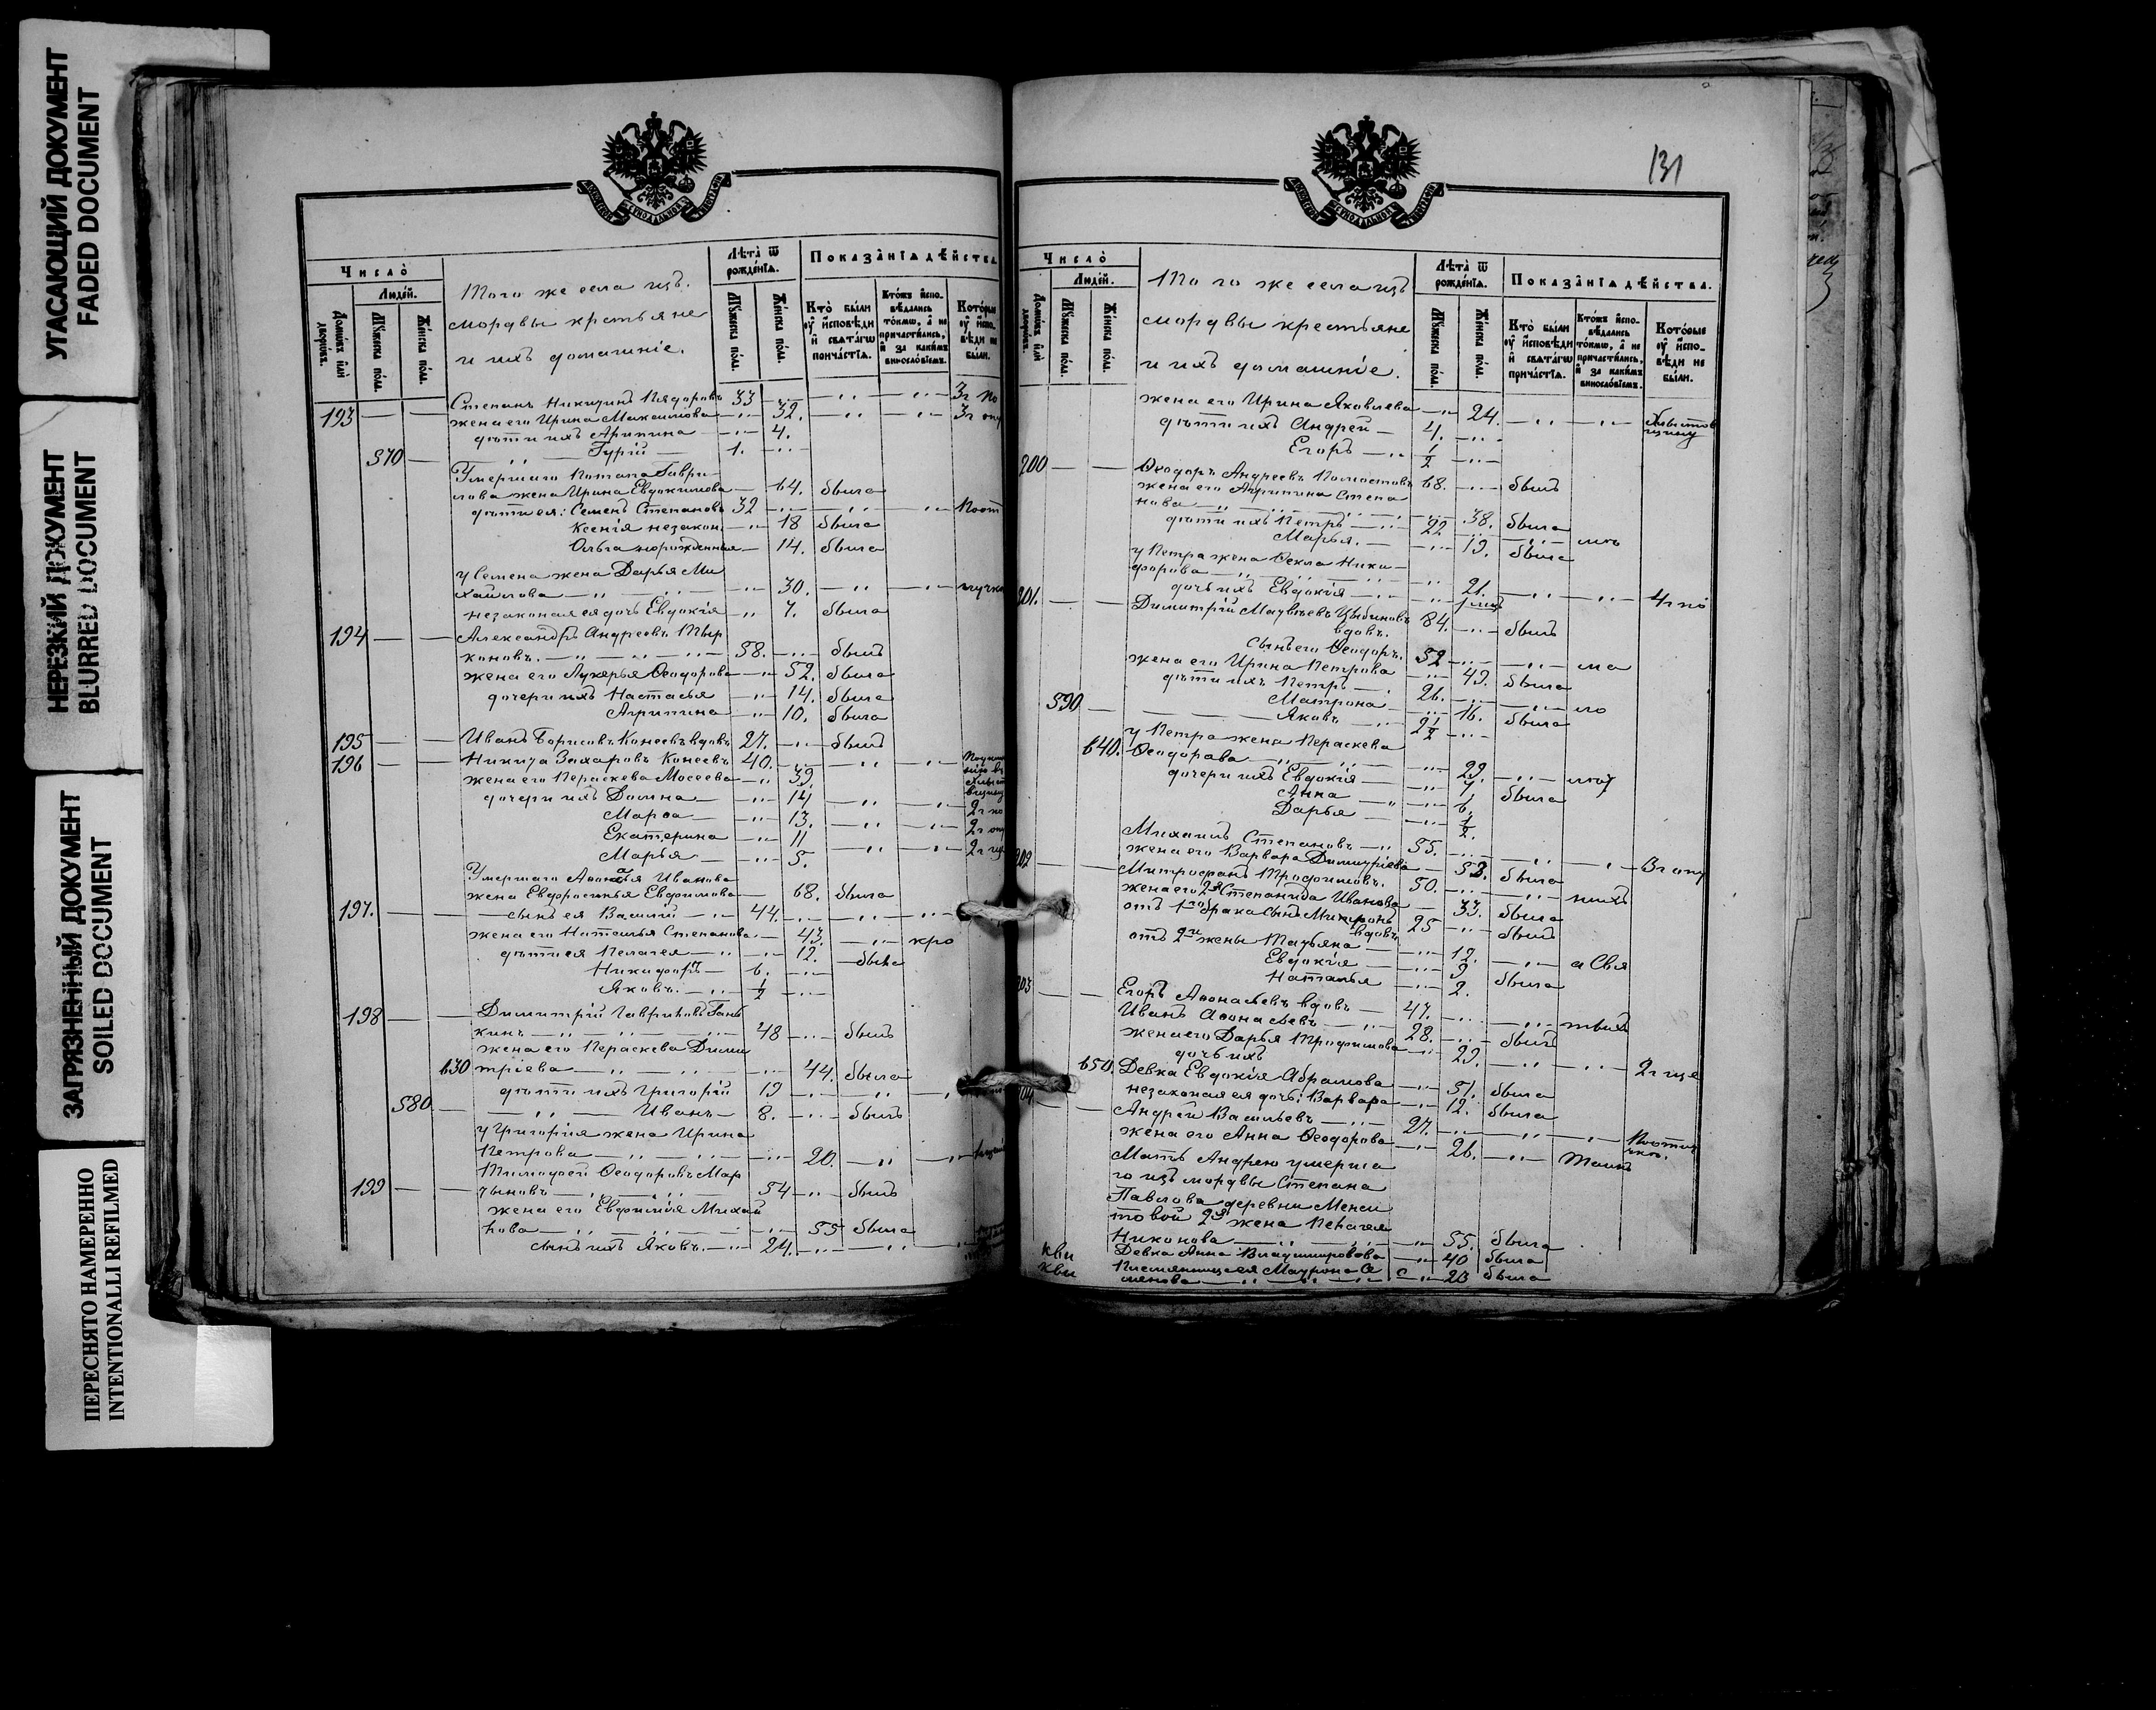 УГАСАЮЩИЙ ДОКУМЕНТ
FADED DOCUMENT
НЕРЕЗКИЙ ДОКУМЕНТ
BLURRED DOCUMENT
ЗАГРЯЗНЕННЫЙ ДОКУМЕНТ
SOILED DOCUMENT
ПЕРЕСНЯТО НАМЕРЕННО
INTENTIONALLI REFILMED
Число̀
Людéй.
Домѡвъ или дворѡвъ.
Мꙋ́жеска пóла.
Жéнска пóла.
Того же села изъ
мордвы крестьяне
и ихъ домашніе.
Лѣта̀ ѿ рождéнїѧ.
Мꙋ́жеска пóла.
Жéнска пóла.
Показа̂нїѧ дѣ́йства.
Кто̀ бы́ли ᲂу҆ и҆сповѣди и҆ свѧта́гѡ прича́стїѧ.
Кто́жъ и҆спо-вѣдались то́кмѡ, а҆ не причасти́лись, и҆ за каки́мъ винослóвїемъ.
Которые ᲂу҆ и҆спо-вѣди не
Степанъ Никитинъ 33 3 г по
193 жена его Ирина Максимова 32. 3 г опу
дѣти ихъ Арипина 4.
570 Гурій 1.
Умершаго Потапа Гаври-
лова жена Ирина Евдокимова 64. была
дѣти ея: Семенъ Степановъ 32
Ксенія незакон. 18 была
Ольга норожденныя 14. была
у Семена жена Дарья Ми
хайлова 30.
незаконая ея дочь Евдокія 7. была
194 Александръ Андреевъ Тыр
коновъ. 58. былъ
жена его Лукерья Ѳеодорова 52. была
дочери ихъ Настасья 14. была
Агрипина 10. была
195 Иванъ Борисовъ Конеевъ вдовъ 27. былъ
196 Никита Захаровъ Конеевъ 40.
жена его Пераскева Мосеева 39.
дочери ихъ Домна 14
Марѳа 13. 2 г по
Екатерина 11 2 г опу
Марья 5.
Умершаго Аѳонасья Иванова
жена Евдросинья Евфимова 68. была
197. сынъ ея Василій 44.
жена его Наталья Степанова 43. кро
дѣти ея Пелагея 12. была
Никифоръ 6.
Яковъ. 1/2
198 Димитрій Гавриловъ Гань
кинъ 48 былъ
жена его Пераскева Дими
630 тріева 44. была
дѣти ихъ Григорій 19
580 Иванъ 8. былъ
у Григорія жена Ирина
Петрова 20.
Тимофей Ѳеодоровъ Мар
199 тыновъ 54 былъ
жена его Евфимія Михай
лова 55 была
сынъ ихъ Яковъ. 24.
131
Число̀
Людéй.
Домѡвъ или дворѡвъ.
Мꙋ́жеска пóла.
Жéнска пóла.
Того же села изъ
мордвы крестьяне
и ихъ домашніе.
Лѣта̀ ѿ рождéнїѧ.
Мꙋ́жеска пóла.
Жéнска пóла.
Показа̂нїѧ дѣ́йства.
Кто̀ бы́ли ᲂу҆ и҆сповѣди и҆ свѧта́гѡ прича́стїѧ.
Кто́жъ и҆спо-вѣдались то́кмѡ, а҆ не причасти́лись, и҆ за каки́мъ винослóвїемъ.
Которые ᲂу҆ и҆спо-вѣди не бы́ли.
жена его Ирина Яковлева 24.
дѣти ихъ Андрей 4.
Егоръ 1/2
200 Ѳеодоръ Андреевъ 68. былъ
жена его Агрипина Степа
нова 38. была
дѣти ихъ Петръ 22
Марья. 19. была
у Петра жена Ѳекла Ники-
форова 21. 4 г по
дочь ихъ Евдокія
201. Димитрій Матвѣевъ Цыбиновъ
вдовъ. 84. былъ
сынъ его Ѳеодоръ. 52
жена его Ирина Петрова 49. была
дѣти ихъ Петръ 26.
Матрона 16. была
590 Яковъ 2 1/2
у Петра жена Пераскева
640. Ѳеодорова 29.
дочери ихъ Евдокія 7 была
Анна 6.
Дарья 1/2.
Михаилъ Степановъ 55. 3 г опу
жена его Варвара Димитріева 53. была
202 Митрофанъ Трофимовъ. 50.
жена его 2я Степанида Иванова 33. была
отъ 1го брака сынъ Митронъ
вдовъ 25 былъ
отъ 2й жены Татьяна 12.
Евдокія 9 была
Наталья 2.
203 Егоръ Аѳонасьевъ вдовъ 47.
Иванъ Аѳонасьевъ 28. былъ
жена его Дарья Трофимова 29. 2 г
дочь ихъ
650. Девка Евдокія Абрамова 51. была
незаконая ея дочь: Варвара 12. была
204 Андрей Васильевъ 27.
жена его Анна Ѳеодорова 26.
Мать Андрею умерша
го изъ мордвы Степана
Павлова деревни Менси
товой 2я жена Пелагея
Никонова 55. была
Девка Анна Владимировова 40 была
Племянница ея Матрона Се
менова 23 была